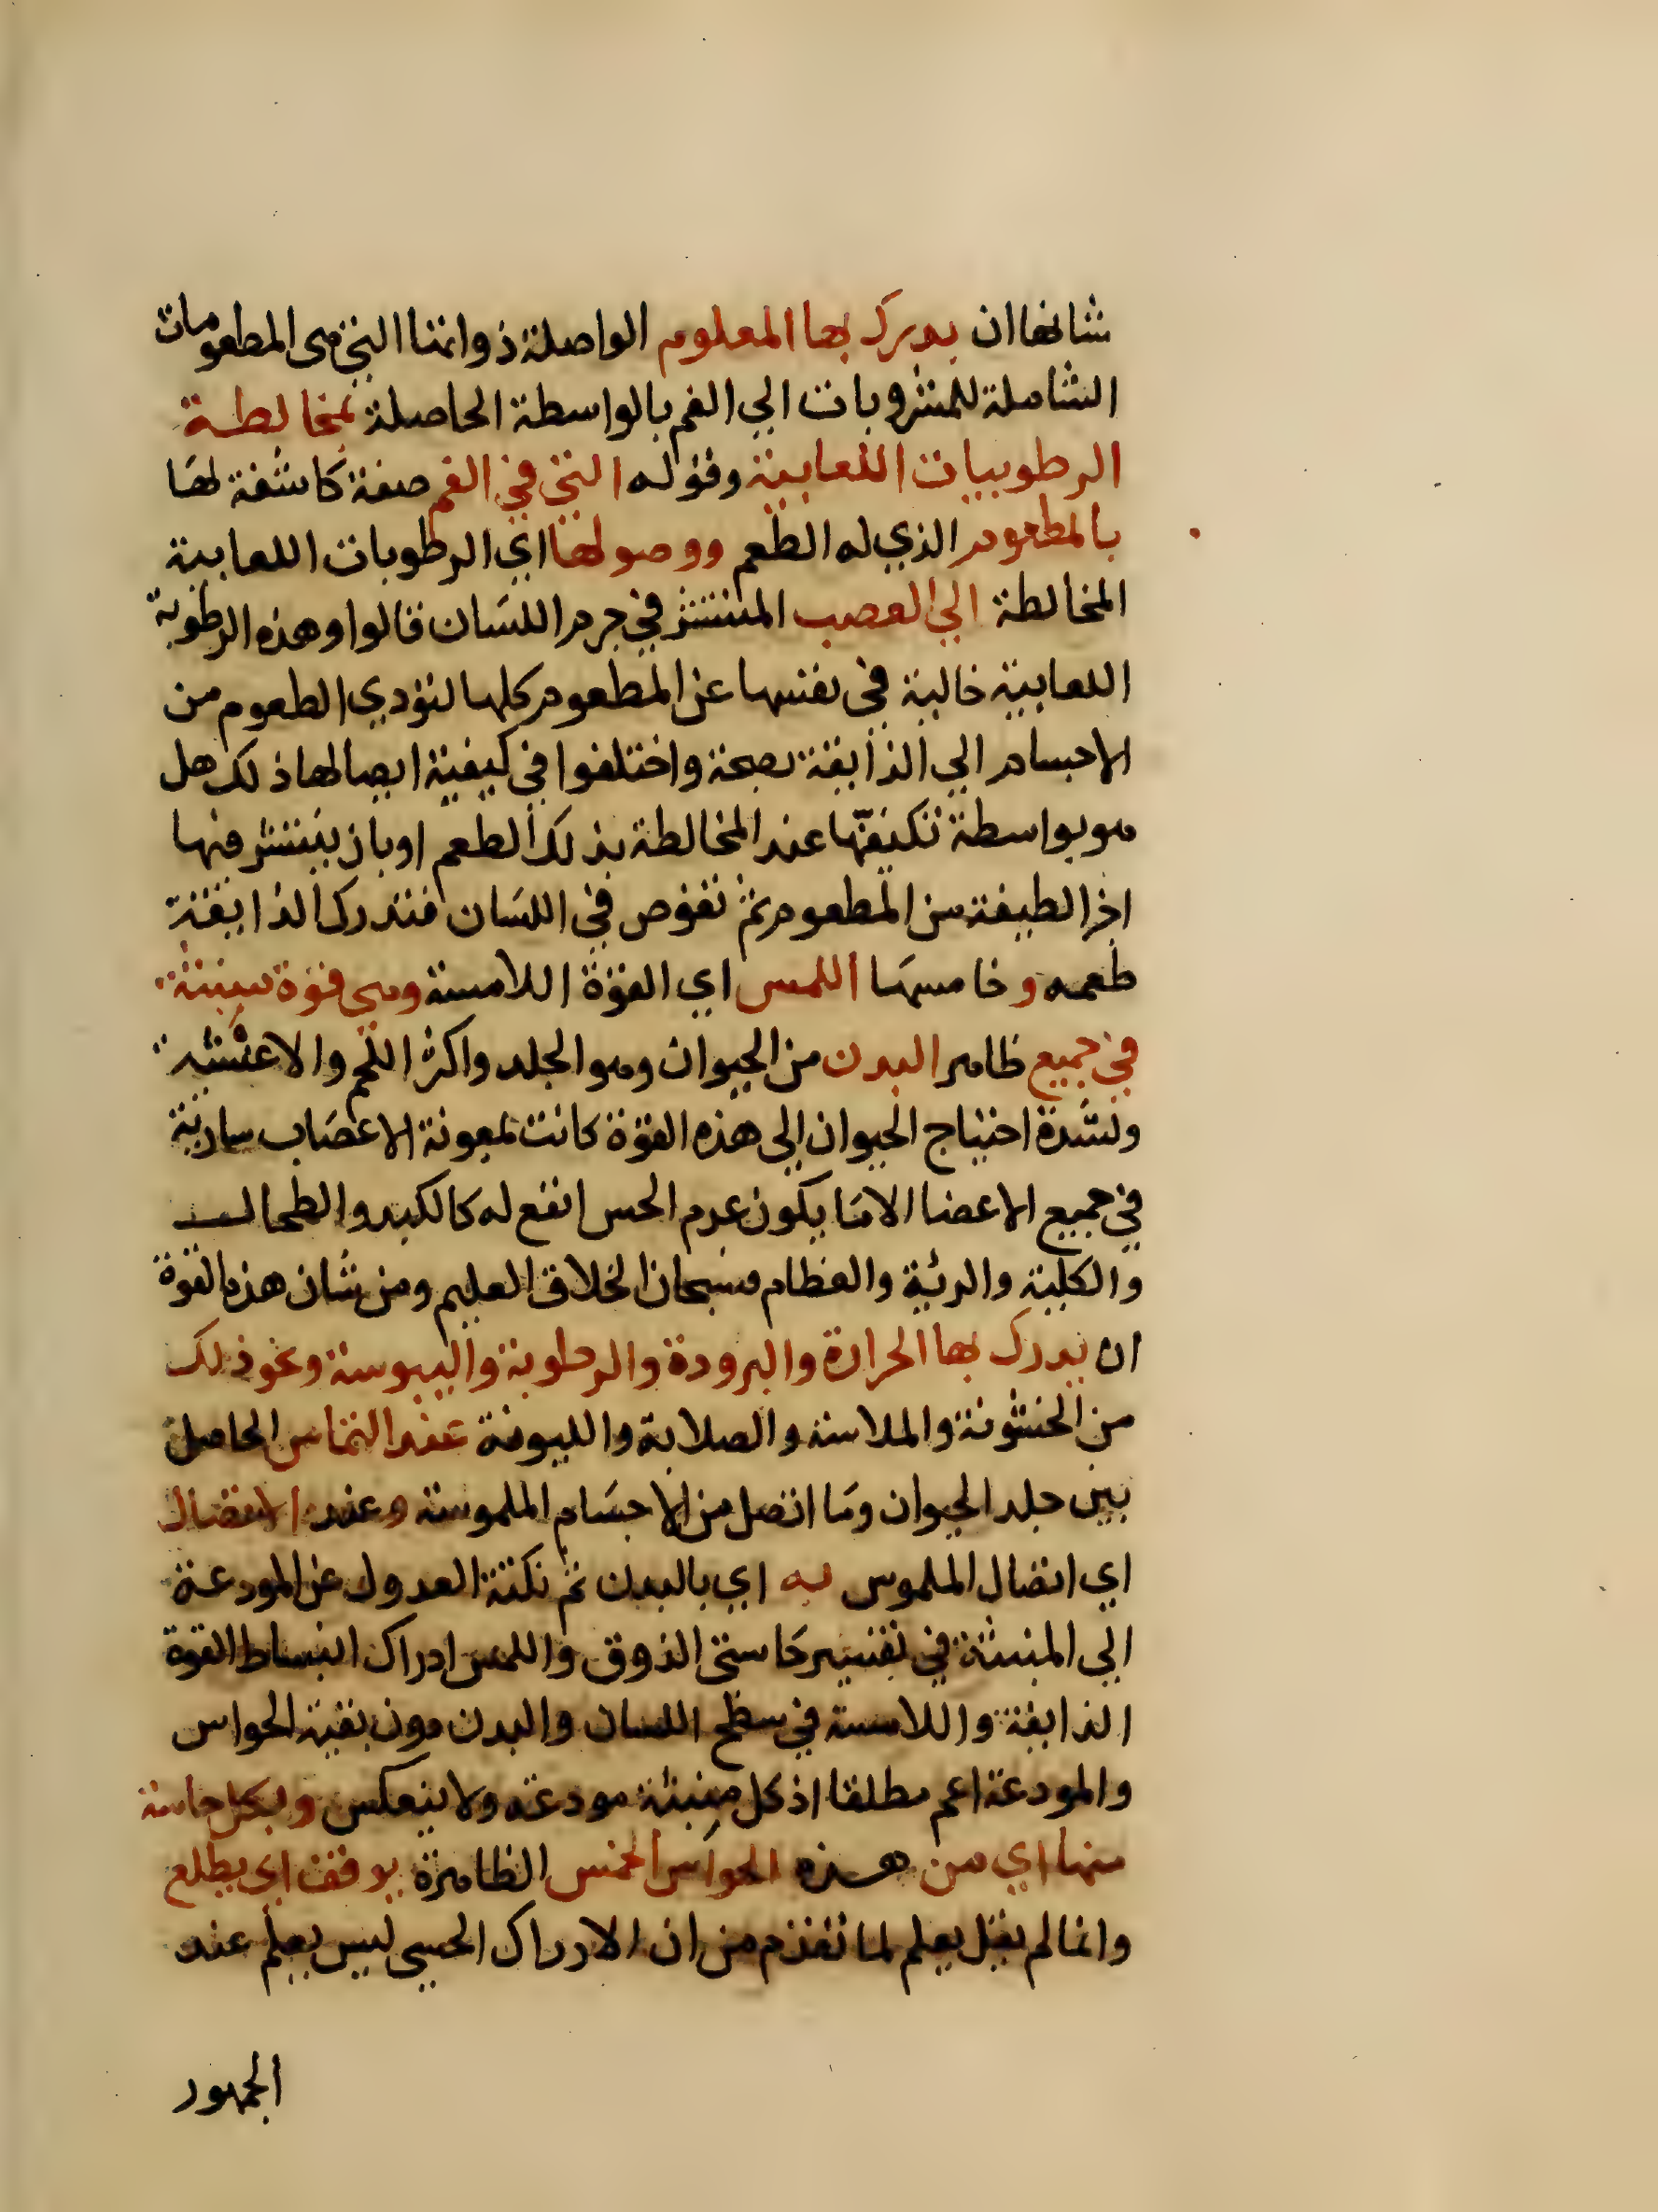 شانها ان يدرك بها المعلوم الواصلة ذواتنا التي هي المطعومات
الشاملة للمشروبات الي الفم بالواسطة الحاصلة بمخالطة
الرطوبيات اللعابية وقوله التي في الفم صفة كاشفة لها
بالمطعوم الذي له الطعم ووصولها اي الرطوبات اللعابية
المخالطة الي العصب المنتشر في جرم اللسان قالوا وهذه الرطوبة
اللعابية خالية في نفسها عن المطعوم كلها لتؤدي الطعوم من
الاجسام الي الذايقة بصحة واختلفوا في كيفية ايصالها ذلك هل
هو بواسطة تكيفها عند المخالطة بذلك الطعم او بان ينتشر فيها
اجزا لطيفة من المطعوم ثم تغوص في اللسان فتدرك الذايقة
طعمه وخامسها اللمس اي القوة اللامسة وهي قوة منبثة
في جميع ظاهر البدن من الحيوان وهو الجلد واكثر اللحم والاغشية
ولشدة احتياج الحيوان الي هذه القوة كانت بمعونة الاعصاب سارية
في جميع الاعضا الا ما يكون عدم الحس انفع له كالكبد والطحال
والكلية والرئية والعظام فسبحان الخلاق العليم ومن شان هذه القوة
ان يدرك بها الحرارة والبرودة والرطوبة واليبوسة ونحو ذلك
من الخشونة والملاسة والصلابة والليونة عند التماس الحاصل
بين جلد الحيوان وما اتصل من الاجسام الملموسة وعند الاتصال
اي اتصال الملموس به اي بالبدن ثم نكتة العدول عن المودعة
الي المنبثة في تفسير حاستي الذوق واللمس ادراك انبساط القوة
الذايقة واللامسة في سطح اللسان والبدن دون بقية الحواس
والمودعة اعم مطلقا اذ كل منبثة مودعة ولا ينعكس وبكل حاسة
منها اي من هذه الحواس الخمس الظاهرة يوقف اي يطلع
وانما لم يقل يعلم لما تقدم من ان الادراك الحسي ليس بعلم عند
الجمهور